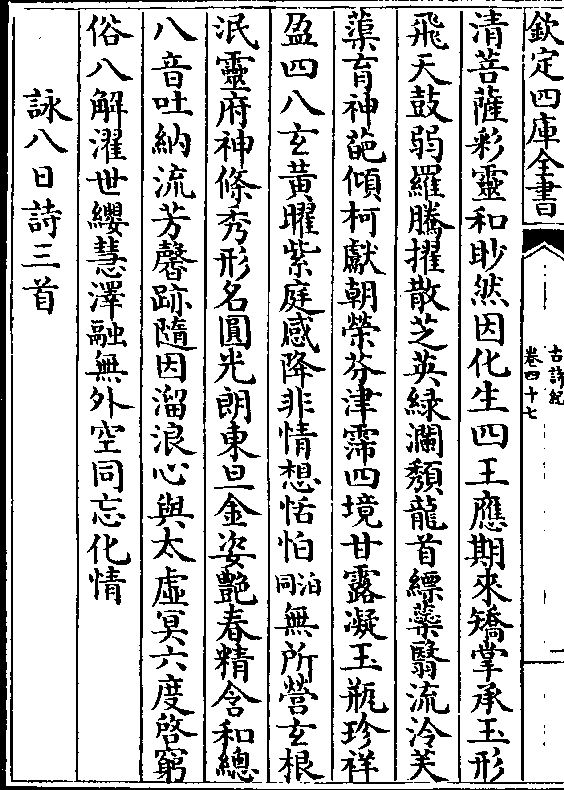 欽定四庫全書
古詩紀
卷四十七
清菩薩彩靈和眇然因化生四王應期來矯掌承玉形
飛天鼓弱羅騰擢散芝英緑瀾頽龍首縹蘂翳流泠芙
蕖育神葩傾柯獻朝榮芬津霈四境甘露凝玉瓶珍祥
盈四八玄黃曜紫庭感降非情想恬怕泊同無所營玄根
泯靈府神條秀形名圓光朗東旦金姿艷春精含和總
八音吐納流芳馨跡隨因溜浪心與太虛冥六度啓窮
俗八解濯世纓慧澤融無外空同忘化情
詠八日詩三首